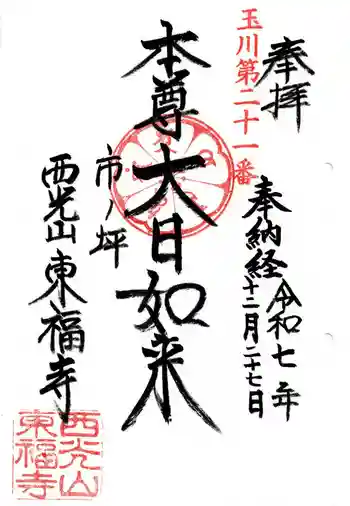 奉拝
玉川第二十一番
奉納経
令和七年
十二月二十七日
本尊大日如来
市ノ坪
西光山東福寺
西光山
東福寺